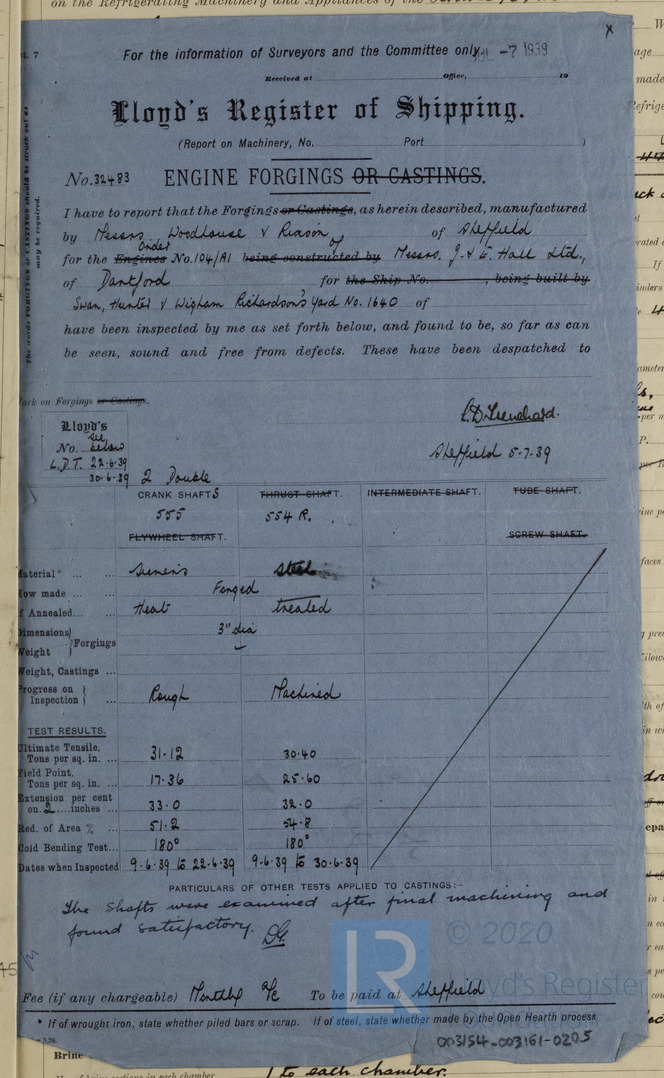 on the Refrigerating Machinery and Appliances of the
For the information of Surveyors and the Committee only. -7 1939
Received at Office, 19
Lloyd's Register of Shipping.
(Report on Machinery, No. Port )
No. 32483 ENGINE FORGINGS OR CASTINGS.
I have to report that the Forgings or Castings, as herein described, manufactured
by Messrs Woodhouse & Rixson of Sheffield
for the Engines Order No. 104/A1 being constructed by of Messrs. J. & E. Hall Ltd.,
of Dartford for the Ship No. , being built by
Swan, Hunter & Wigham Richardson's Yard No. 1640 of
have been inspected by me as set forth below, and found to be, so far as can
be seen, sound and free from defects. These have been despatched to
The words FORGINGS or CASTINGS should be struck out as
may be required.
Mark on Forgings or Castings.
Lloyd's
No. See below
L.D.T. 22-6-39
30-6-39
L.D. Trenchard.
Sheffield 5-7-39
2 Double
CRANK SHAFTS THRUST SHAFT. INTERMEDIATE SHAFT. TUBE SHAFT.
555 554 R.
FLYWHEEL SHAFT. SCREW SHAFT.
Material* Siemens Steel
How made Forged
If Annealed Heat treated
Dimensions } Forgings 3" dia
Weight }
Weight, Castings
Progress on Inspection Rough Machined
TEST RESULTS.
Ultimate Tensile.
Tons per sq. in. 31.12 30.40
Yield Point.
Tons per sq. in. 17.36 25.60
Extension per cent
on 2 inches 33.0 32.0
Red. of Area % 51.2 54.8
Cold Bending Test 180° 180°
Dates when Inspected 9.6.39 to 22.6.39 9.6.39 to 30.6.39
PARTICULARS OF OTHER TESTS APPLIED TO CASTINGS:-
The shafts were examined after final machining and
found satisfactory.
© 2020
Lloyd's Register
Fee (if any chargeable) Monthly a/c To be paid at Sheffield
* If of wrought iron, state whether piled bars or scrap. If of steel, state whether made by the Open Hearth process
003154-003161-0205
Brine
1 to each chamber.